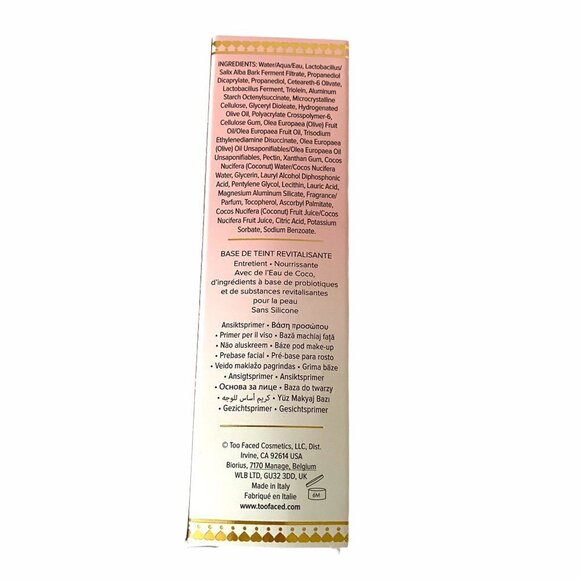 INGREDIENTS: Water/Aqua/Eau, Lactobacillus/
Salix Alba Bark Ferment Filtrate, Propanediol
Dicaprylate, Propanediol, Ceteareth-6 Olivate,
Lactobacillus Ferment, Triolein, Aluminum
Starch Octenylsuccinate, Microcrystalline
Cellulose, Glyceryl Dioleate, Hydrogenated
Olive Oil, Polyacrylate Crosspolymer-6,
Cellulose Gum, Olea Europaea (Olive) Fruit
Oil/Olea Europaea Fruit Oil, Trisodium
Ethylenediamine Disuccinate, Olea Europaea
(Olive) Oil Unsaponifiables/Olea Europaea Oil
Unsaponifiables, Pectin, Xanthan Gum, Cocos
Nucifera (Coconut) Water/Cocos Nucifera
Water, Glycerin, Lauryl Alcohol Diphosphonic
Acid, Pentylene Glycol, Lecithin, Lauric Acid,
Magnesium Aluminum Silicate, Fragrance/
Parfum, Tocopherol, Ascorbyl Palmitate,
Cocos Nucifera (Coconut) Fruit Juice/Cocos
Nucifera Fruit Juice, Citric Acid, Potassium
Sorbate, Sodium Benzoate.
BASE DE TEINT REVITALISANTE
Entretient • Nourrissante
Avec de l'Eau de Coco,
d'ingrédients à base de probiotiques
et de substances revitalisantes
pour la peau
Sans Silicone
Ansiktsprimer • Βάση προσώπου
• Primer per il viso • Bază machiaj față
• Não aluskreem • Báze pod make-up
• Prebase facial • Pré-base para rosto
• Veido makiažo pagrindas • Grima bāze
• Ansigtsprimer • Ansiktsprimer
• Основа за лице • Baza do twarzy
• كريم أساس للوجه • Yüz Makyaj Bazı
• Gezichtsprimer • Gesichtsprimer
© Too Faced Cosmetics, LLC, Dist.
Irvine, CA 92614 USA
Biorius, 7170 Manage, Belgium
WLB LTD, GU32 3DD, UK
Made in Italy
Fabriqué en Italie
6M
www.toofaced.com